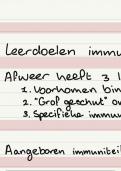 Leerdoelen immu
Afweer heeft 3 l
1. Voorkomen bin
2. "Grof geschut" ov
3. Specifieke immu
Aangeboren immuniteit